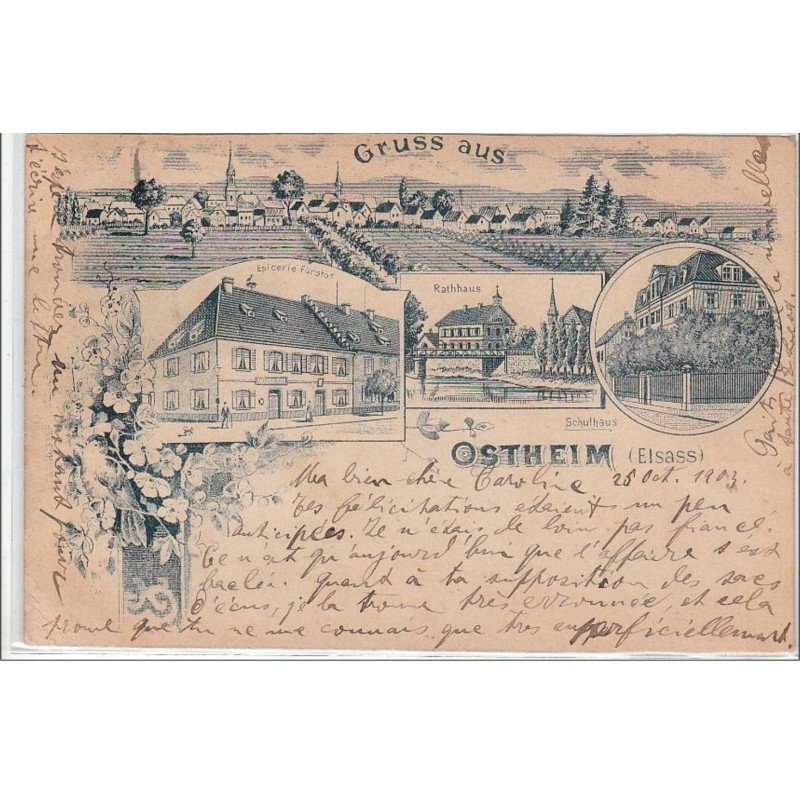 Gruss aus
Epicerie Fürstos
Rathhaus
Schulhaus
OSTHEIM (Elsass)
Ma bien chère Caroline 25 Oct. 1903.
Tes félicitations étaient un peu
anticipées. Je n'étais de loin pas fiancé.
Ce n'est qu'aujourd'hui que l'affaire s'est
baclée. quant à ta supposition des sacs
d'écus, je la trouve très erronnée, et cela
prouve que tu ne me connais que très superficiellement.
J'espère trouver un instant pour
t'écrire une lettre.
à toute
la nouvelle